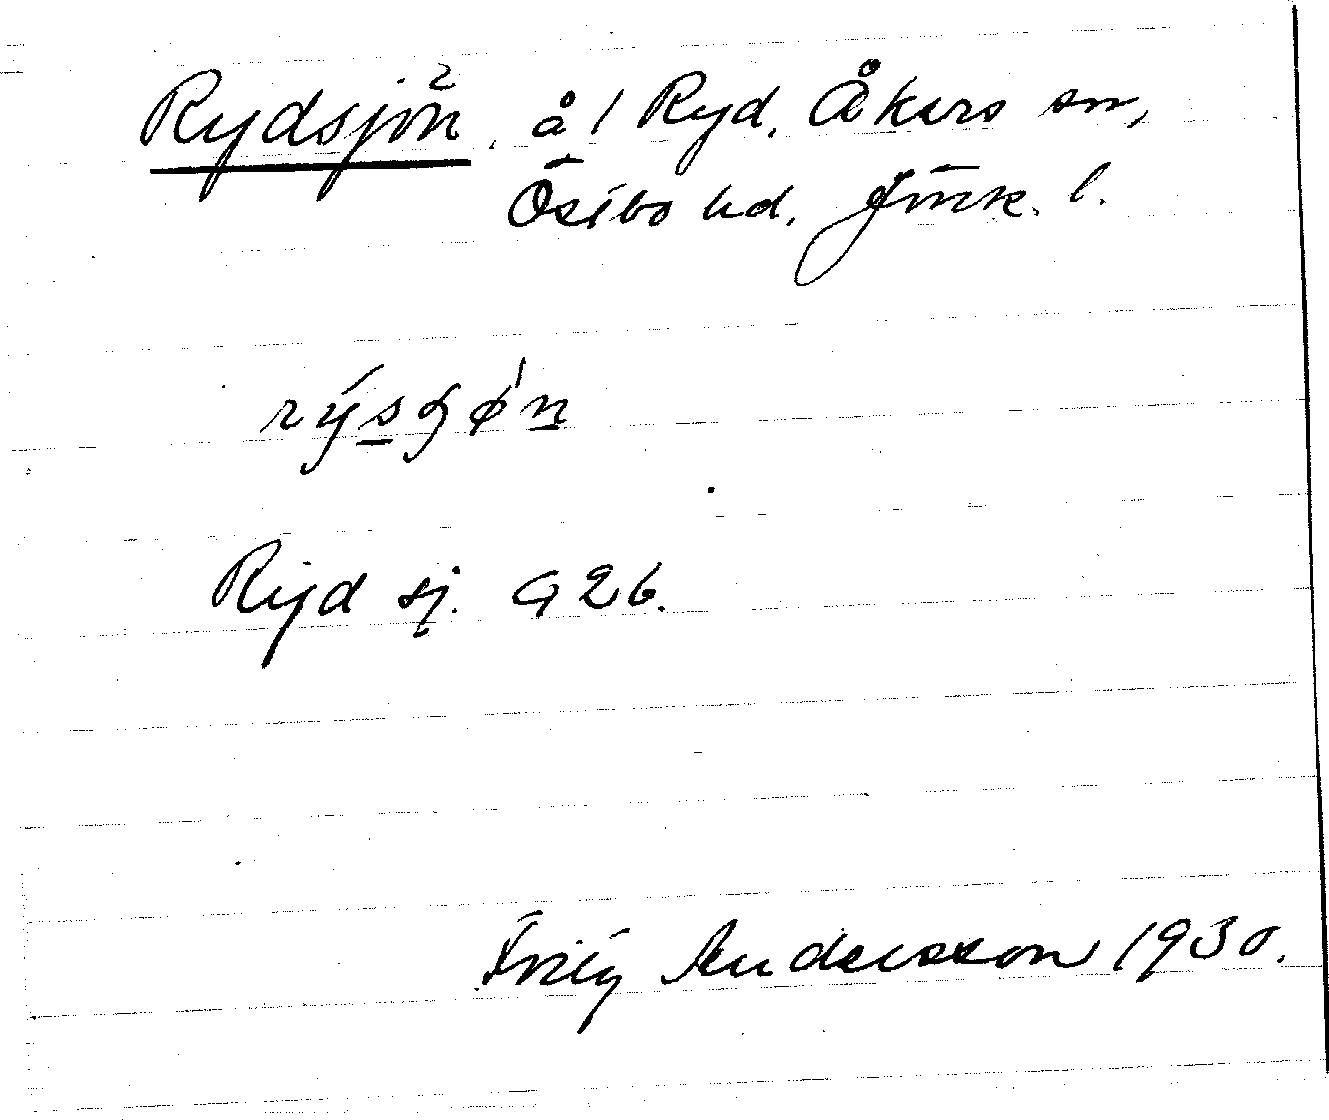 Rydsjön, å / Ryd, Åkers sn,
Östbo hd, Jönk. l.
rýsʃøn
Ryd sj. G26.
Fritz Andersson 1930.